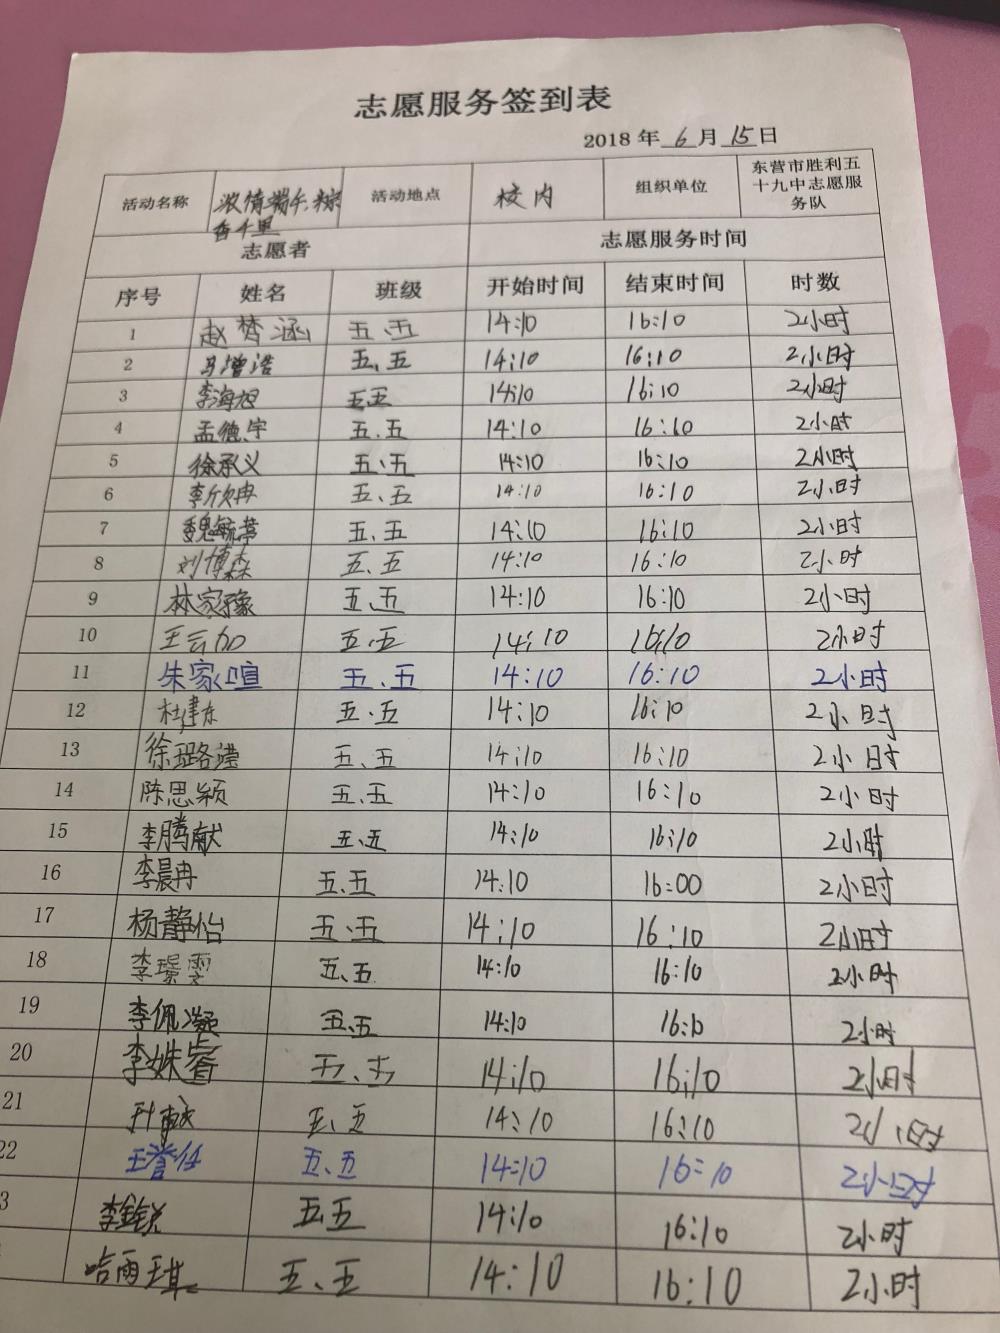 志愿服务签到表
2018 年 6 月 15 日
活动名称 浓情端午粽香千里 活动地点 校内 组织单位 东营市胜利五十九中志愿服务队
志愿者 志愿服务时间
序号 姓名 班级 开始时间 结束时间 时数
1 赵梦涵 五、五 14:10 16:10 2小时
2 马增浩 五、五 14:10 16:10 2小时
3 李海旭 五五 14:10 16:10 2小时
4 孟德宇 五、五 14:10 16:10 2小时
5 徐承义 五、五 14:10 16:10 2小时
6 李欣冉 五、五 14:10 16:10 2小时
7 魏毓 五、五 14:10 16:10 2小时
8 刘博森 五、五 14:10 16:10 2小时
9 林家豫 五、五 14:10 16:10 2小时
10 王云加 五、五 14:10 16:10 2小时
11 朱家喧 五、五 14:10 16:10 2小时
12 杜建东 五、五 14:10 16:10 2小时
13 徐璐滢 五、五 14:10 16:10 2小时
14 陈思颖 五、五 14:10 16:10 2小时
15 李腾献 五、五 14:10 16:10 2小时
16 李晨冉 五、五 14:10 16:00 2小时
17 杨静怡 五、五 14:10 16:10 2小时
18 李璟雯 五、五 14:10 16:10 2小时
19 李佩凝 五、五 14:10 16:10 2小时
20 李姝睿 五、五 14:10 16:10 2小时
21 五、五 14:10 16:10 2小时
22 王誉 五、五 14:10 16:10 2小时
3 李鑫锐 五五 14:10 16:10 2小时
哈雨琪 五、五 14:10 16:10 2小时